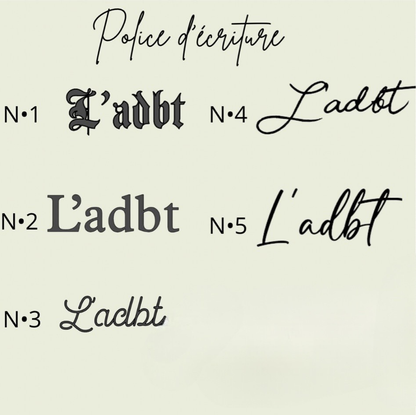 Police d'écriture
N•1 L'adbt
N•4 L'adbt
N•2 L'adbt
N•5 L'adbt
N•3 L'adbt